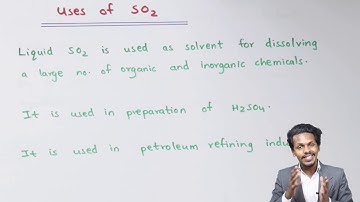 Uses of SO2
Liquid SO2 is used as solvent for dissolving
a large no. of organic and inorganic chemicals.
It is used in preparation of H2SO4.
It is used in petroleum refining